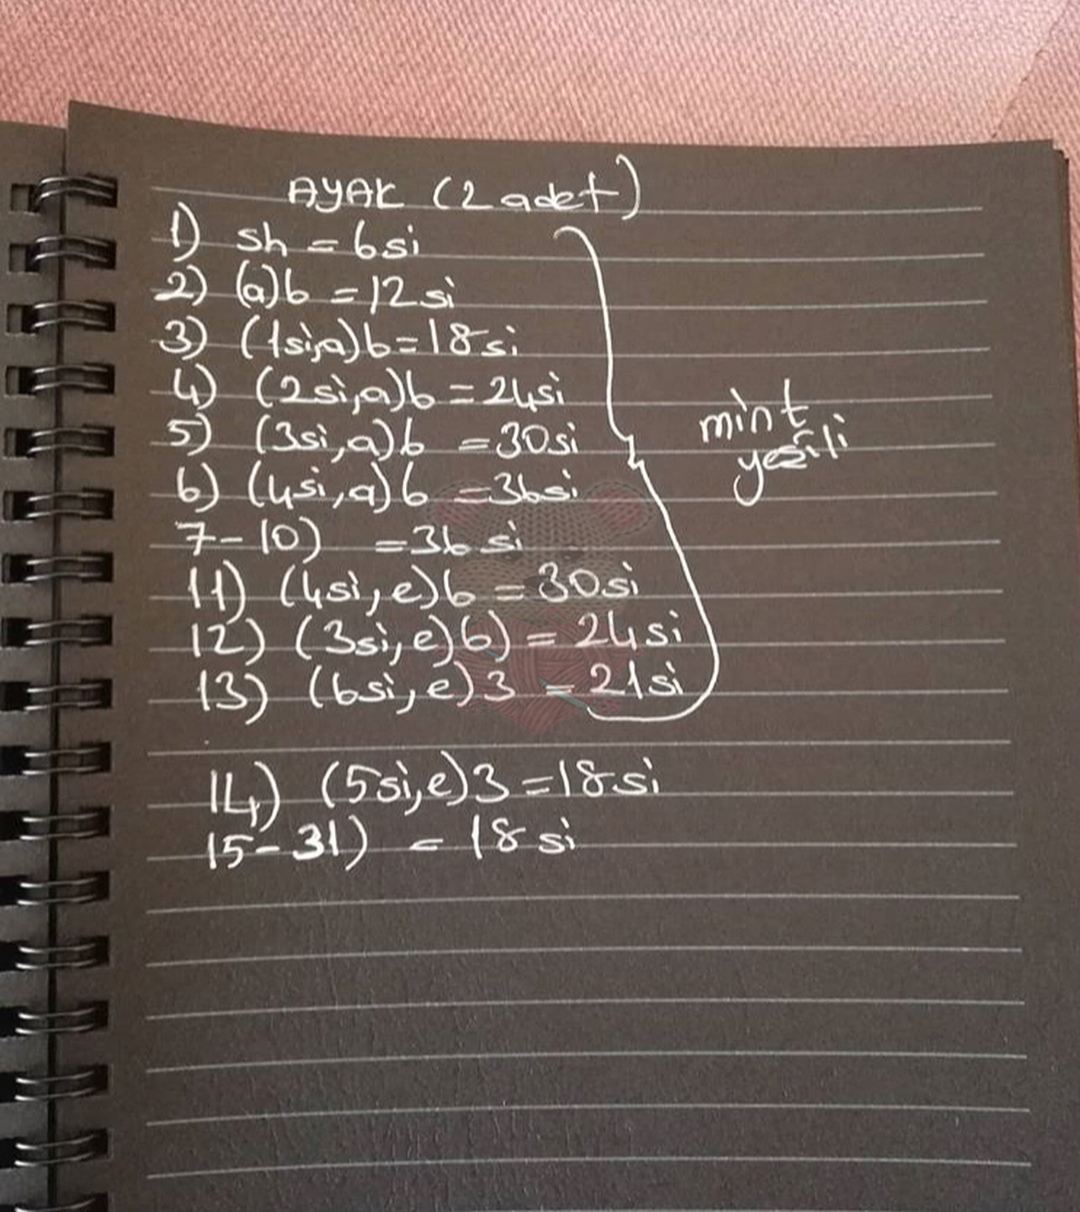 AYAK (2 adet)
1) sh = 6si
2) (a)6 = 12si
3) (1si,a)6=18si
4) (2si,a)6 = 24si
5) (3si,a)6 = 30si
6) (4si,a)6 = 36si
7-10) = 36 si
11) (4si,e)6 = 30si
12) (3si,e)6) = 24si
13) (6si,e)3 = 21si
mint
yeşili
14) (5si,e)3 = 18si
15-31) = 18 si